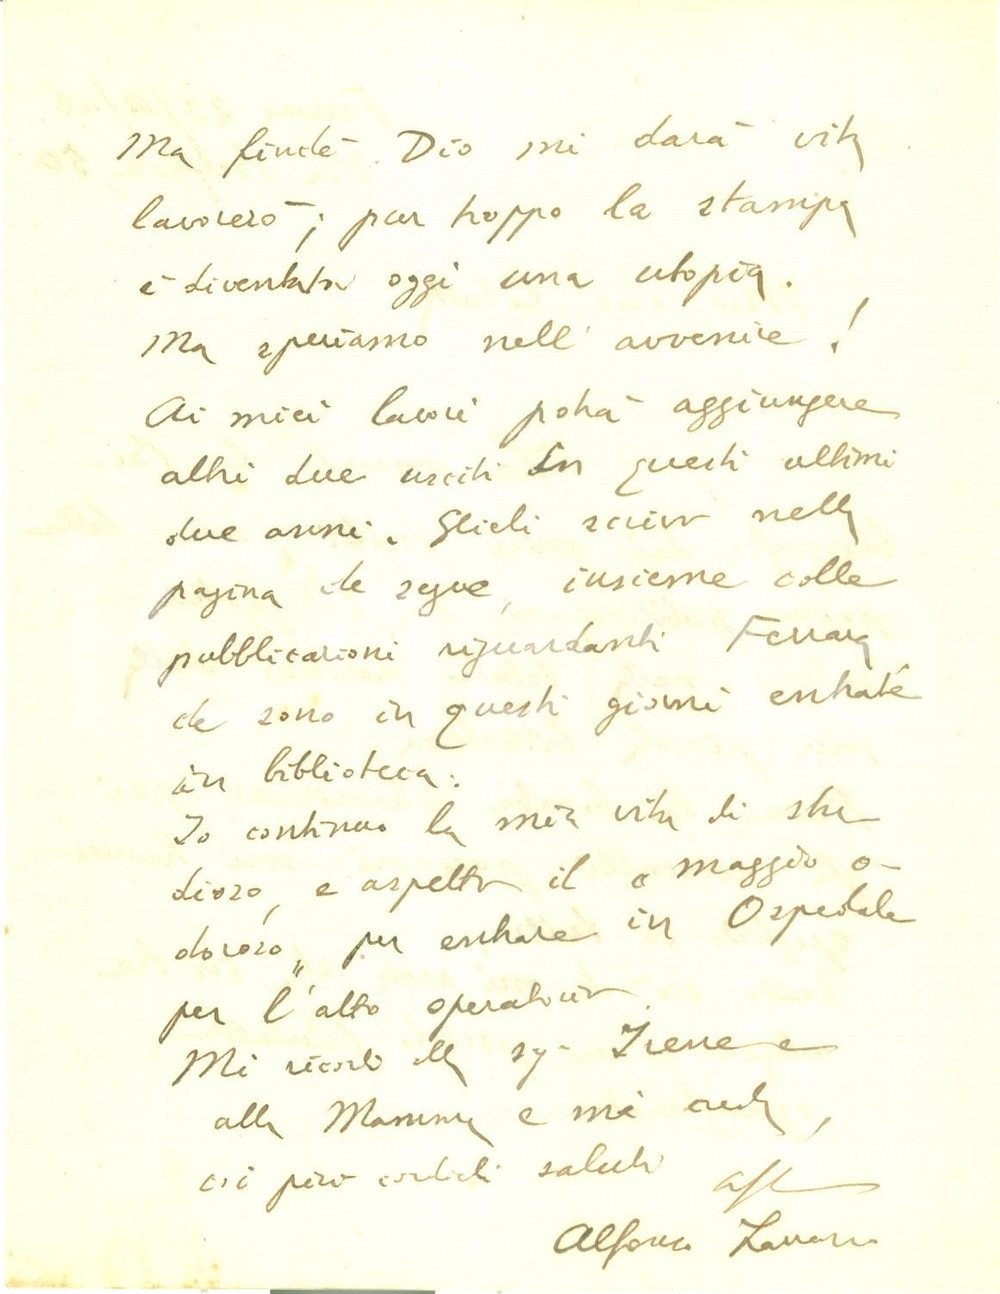 Ma finchè Dio mi darà vita
lavorerò; pur troppo la stampa
è diventata oggi una utopia.
Ma speriamo nell'avvenire!
Ai miei lavori potrà aggiungere
altri due usciti in questi ultimi
due anni. Glieli scrivo nella
pagina che segue, insieme colle
pubblicazioni riguardanti Ferrara
che sono in questi giorni entrate
in biblioteca.
Io continuo la mia vita di stu-
dioso, e aspetto il "maggio o-
doroso" per entrare in Ospedale
per l'atto operatorio.
Mi ricordi alla sig- Irene e
alla Mamma e mi creda,
coi più cordiali saluti aff
Alfonso Lazzari